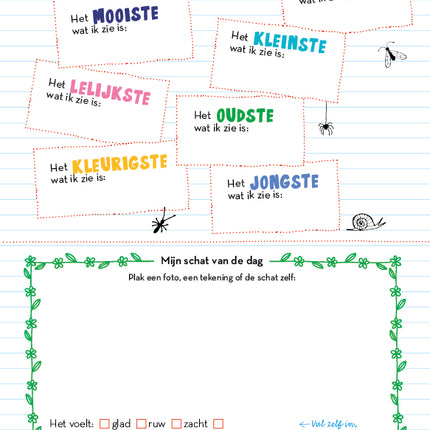 Het MOOISTE
wat ik zie is:
Het KLEINSTE
wat ik zie is:
Het LELIJKSTE
wat ik zie is:
Het OUDSTE
wat ik zie is:
Het KLEURIGSTE
wat ik zie is:
Het JONGSTE
wat ik zie is:
Mijn schat van de dag
Plak een foto, een tekening of de schat zelf:
Het voelt: glad ruw zacht
Vul zelf in.